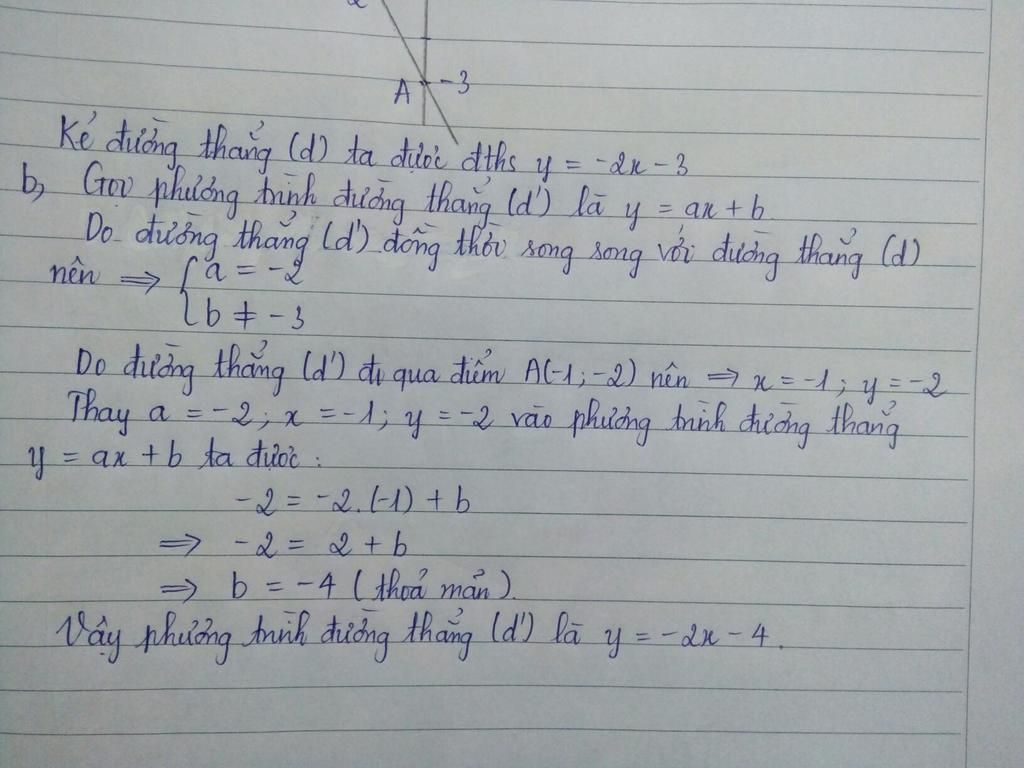 A -3
Kẻ đường thẳng (d) ta được đths y = -2x - 3
b, Gọi phương trình đường thẳng (d') là y = ax + b
Do đường thẳng (d') đồng thời song song với đường thẳng (d)
nên ⇒ { a = -2
b ≠ -3
Do đường thẳng (d') đi qua điểm A(-1; -2) nên ⇒ x = -1; y = -2
Thay a = -2; x = -1; y = -2 vào phương trình đường thẳng
y = ax + b ta được:
-2 = -2.(-1) + b
⇒ -2 = 2 + b
⇒ b = -4 (thoả mãn).
Vậy phương trình đường thẳng (d') là y = -2x - 4.